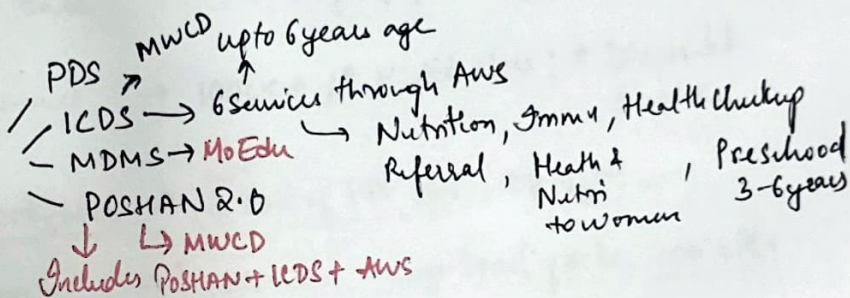 MWCD upto 6 years age
PDS
ICDS → 6 Services through AWS
Nutrition, Immu, Health Checkup
MDMS → MoEdu
Referral, Heath & Nutri to women, Preschood 3-6 years
POSHAN 2.0
MWCD
Includes POSHAN + ICDS + AWS